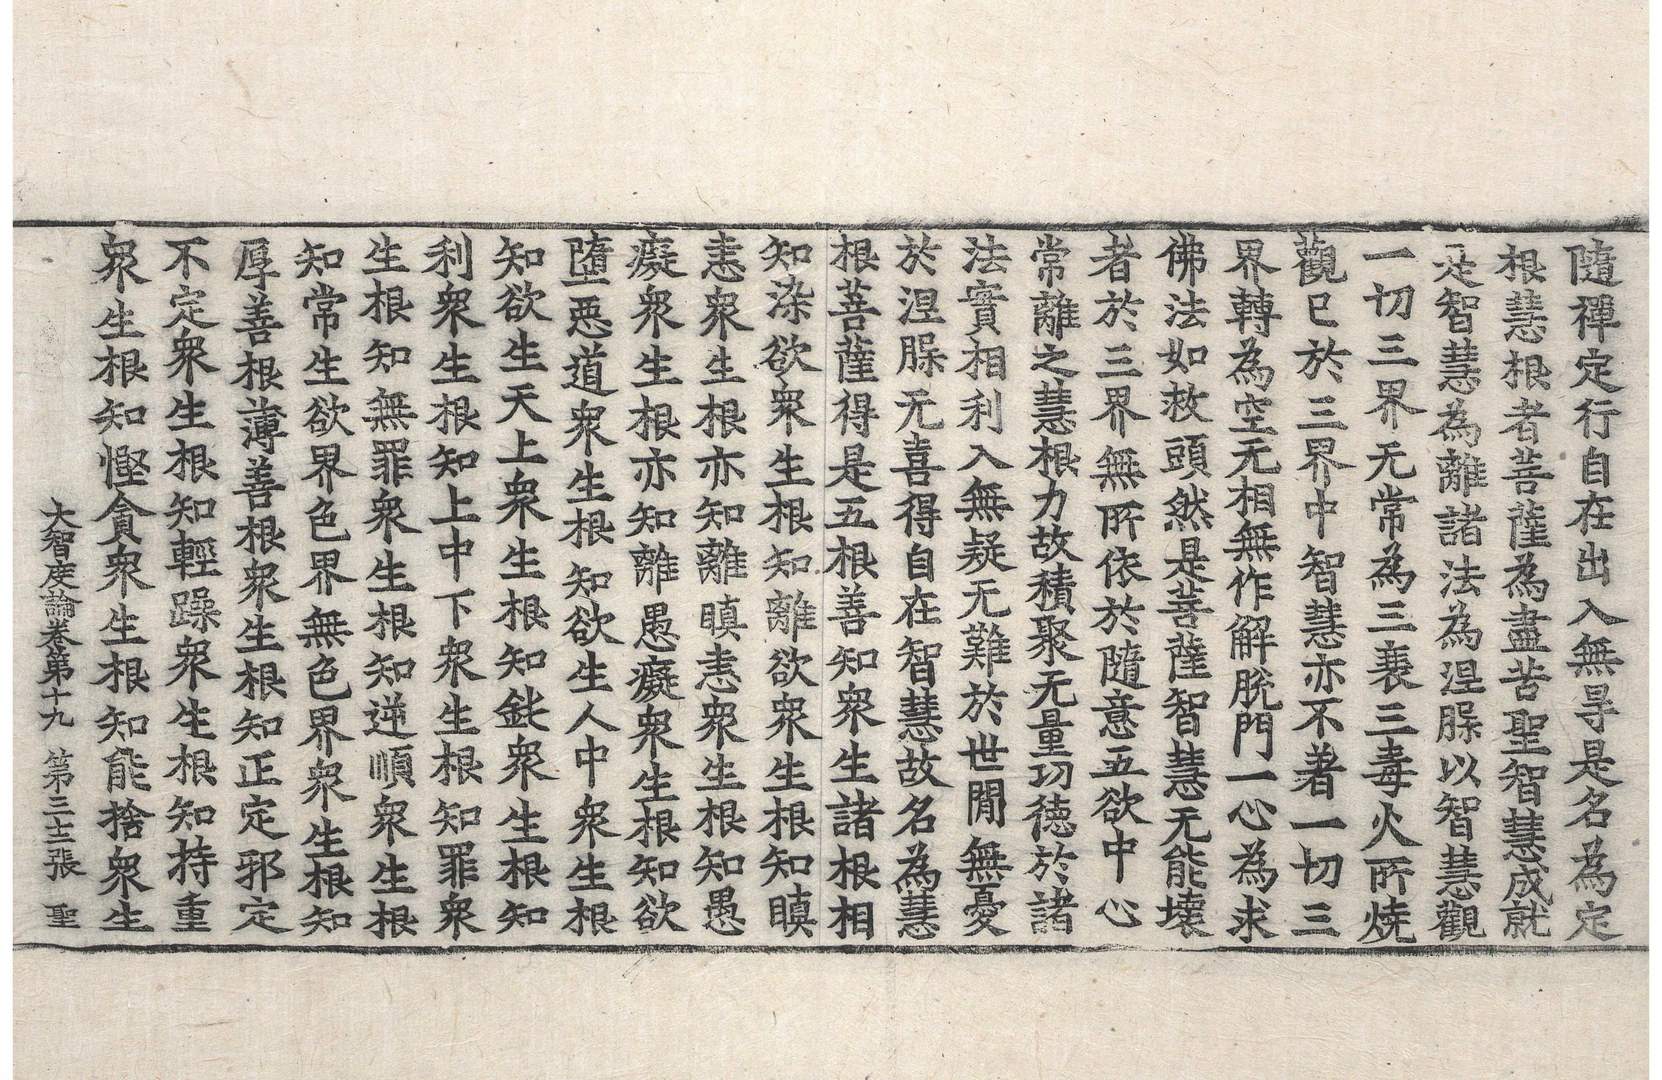 隨禪定行自在出入無㝵是名為定
根慧根者菩薩為盡苦聖智慧成就
是智慧為離諸法為涅脲以智慧觀
一切三界无常為三衰三毒火所燒
觀已於三界中智慧亦不著一切三
界轉為空无相無作解脫門一心為求
佛法如救頭然是菩薩智慧无能壞
者於三界無所依於隨意五欲中心
常離之慧根力故積聚无量功德於諸
法實相利入無疑无難於世閒無憂
於涅脲无喜得自在智慧故名為慧
根菩薩得是五根善知衆生諸根相
知染欲衆生根知離欲衆生根知瞋
恚衆生根亦知離瞋恚衆生根知愚
癡衆生根亦知離愚癡衆生根知欲
墮惡道衆生根知欲生人中衆生根
知欲生天上衆生根知鈍衆生根知
利衆生根知上中下衆生根知罪衆
生根知無罪衆生根知逆順衆生根
知常生欲界色界無色界衆生根知
厚善根薄善根衆生根知正定邪定
不定衆生根知輕躁衆生根知持重
衆生根知慳貪衆生根知能捨衆生
大智度論卷第十九 第三十二張 聖